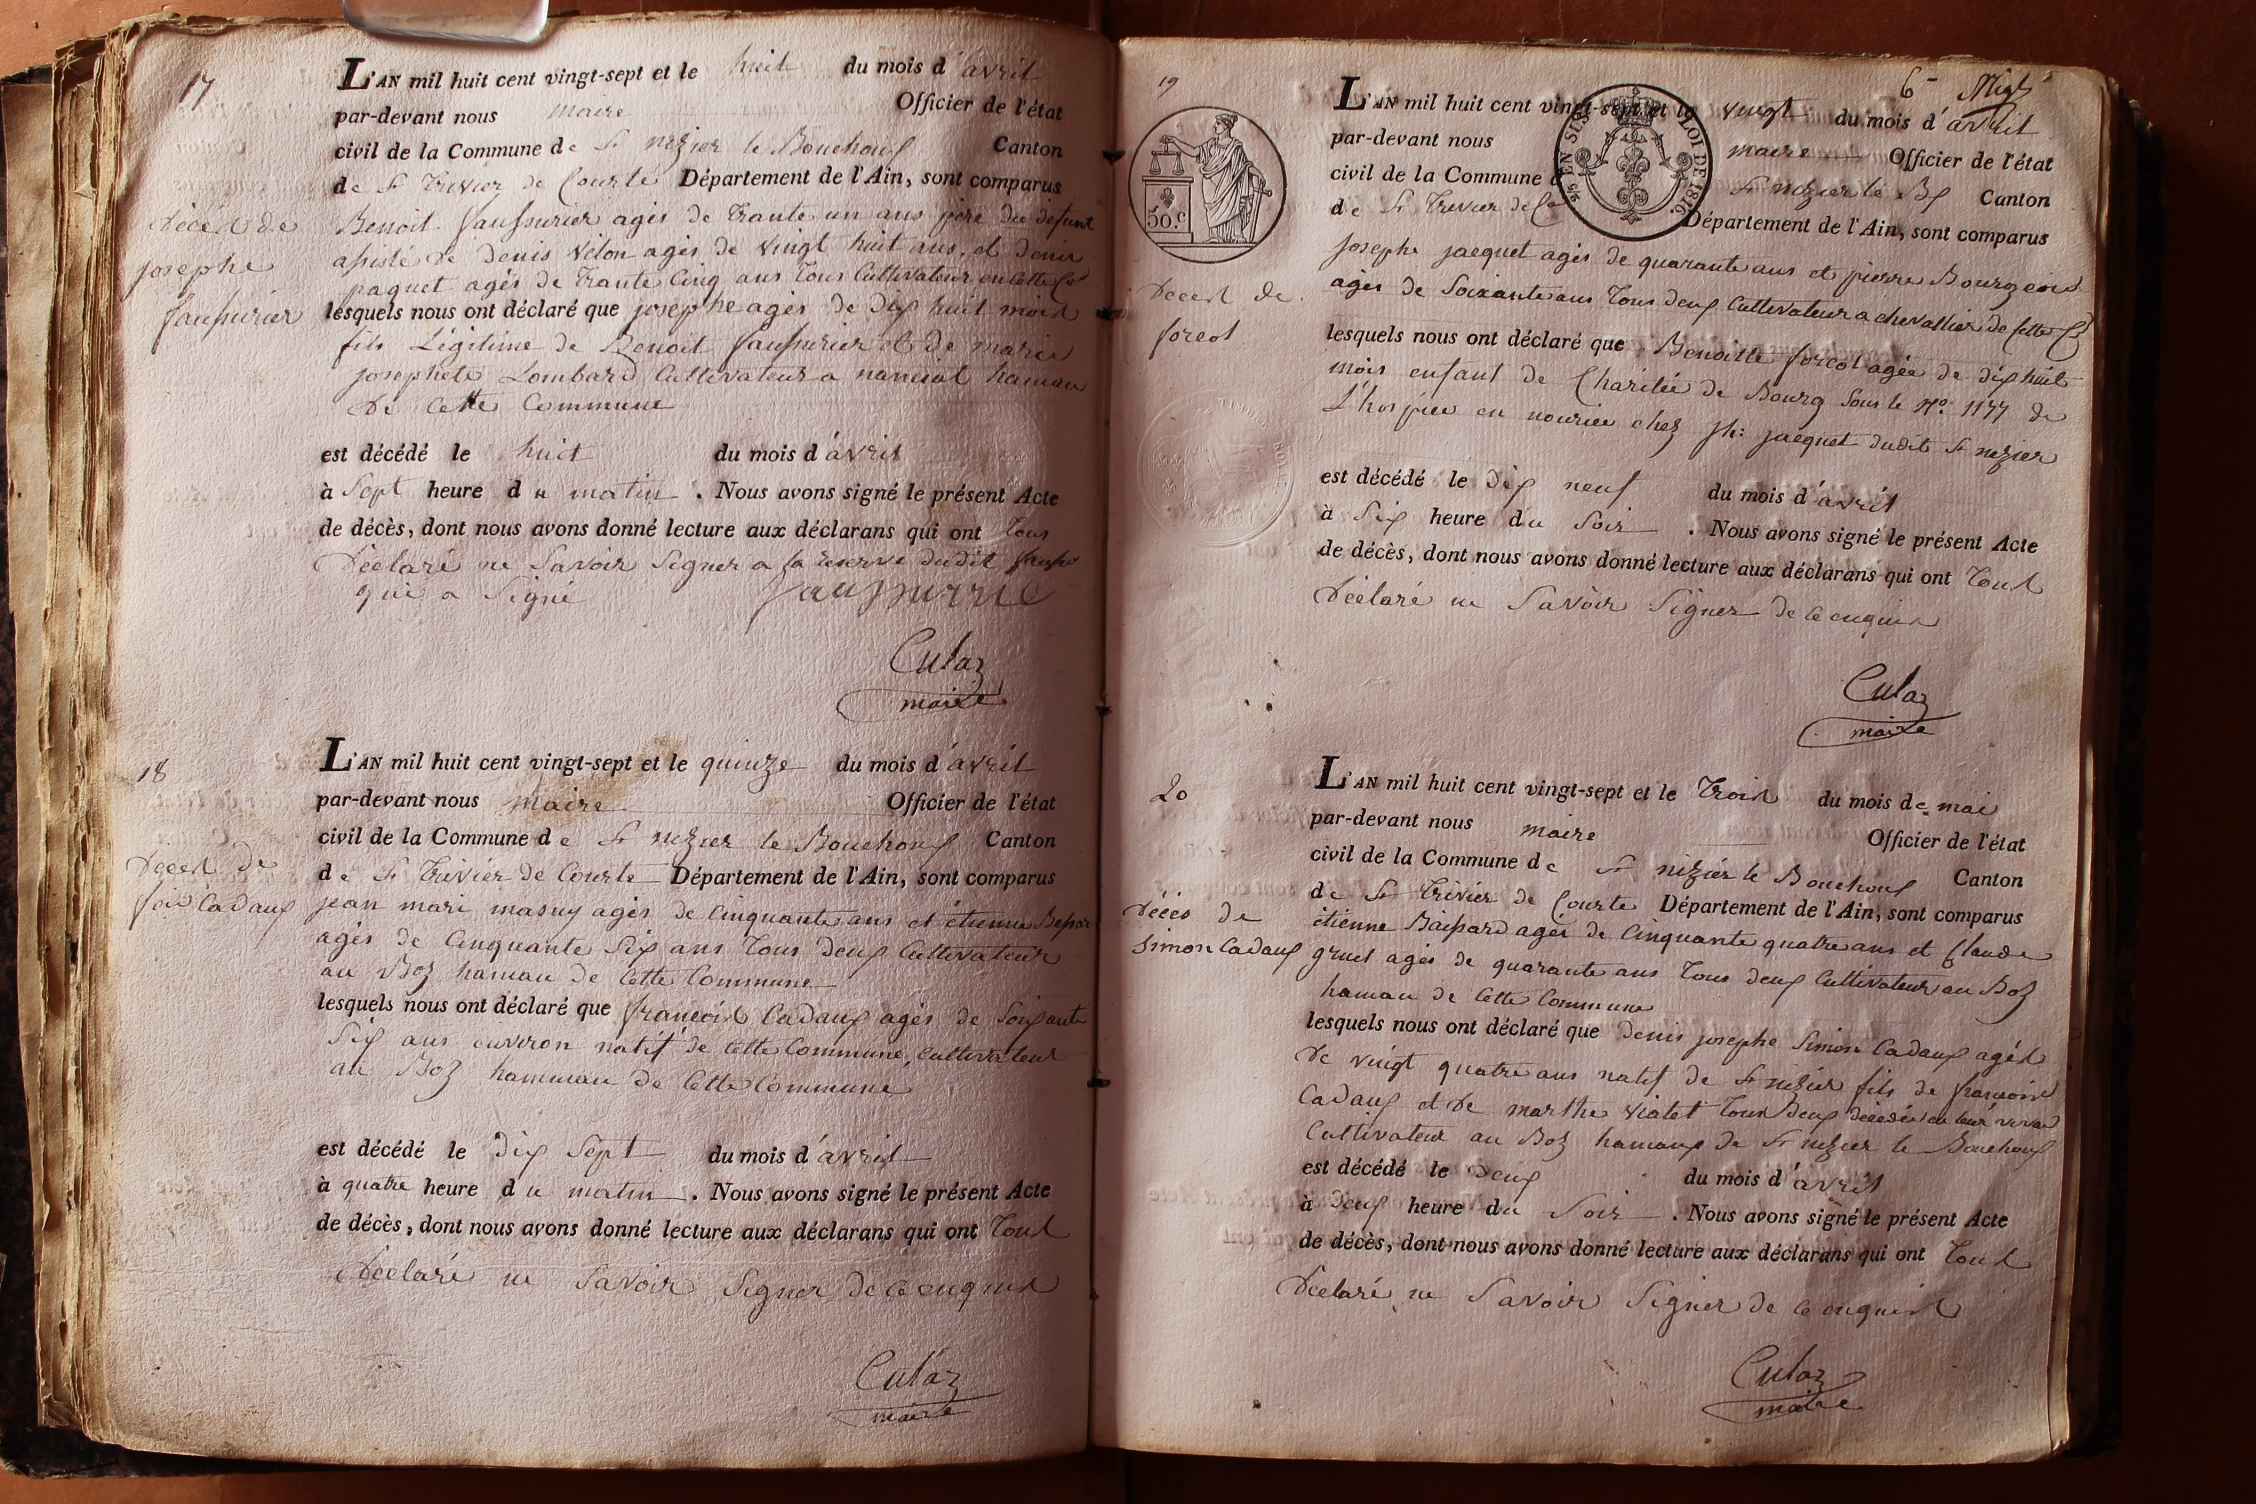 17
L'AN mil huit cent vingt-sept et le huit du mois d'avril
par-devant nous maire Officier de l'état
civil de la Commune de St nizier le Bouchoux Canton
de St Trivier de Courte Département de l'Ain, sont comparus
Décès de
josephe
faussurier
Benoit faussurier agés de trante un ans père du défunt
assisté de denis vélon agés de vingt huit ans, et denis
paquet agés de trante cinq ans tous cultivateur en cette Cne
lesquels nous ont déclaré que josephe agés de dix huit mois
fils Légitime de Benoit faussurier et de marie
josephete Lombard cultivateur a hamau
de cette commune
est décédé le huit du mois d'avril
à sept heure du matin. Nous avons signé le présent Acte
de décès, dont nous avons donné lecture aux déclarans qui ont tous
Déclaré ne savoir signer a la reserve dudit
qui a signé
Culaz
maire
18
L'AN mil huit cent vingt-sept et le quinze du mois d'avril
par-devant nous maire Officier de l'état
civil de la Commune de St nizier le Bouchoux Canton
de St Trivier de Courte Département de l'Ain, sont comparus
Décès de
fois Cadaux
jean mari masuy agés de cinquante ans et étienne
agés de cinquante six ans tous deux cultivateur
au Boz hamau de cette commune
lesquels nous ont déclaré que françois Cadaux agés de soixante
six ans environ natif de cette commune, cultivateur
au Boz hammau de cette commune
est décédé le dix sept du mois d'avril
à quatre heure du matin. Nous avons signé le présent Acte
de décès, dont nous avons donné lecture aux déclarans qui ont tous
Déclaré ne savoir signer de ce enquis
Culaz
maire
6
19
L'AN mil huit cent vingt-sept et le vingt du mois d'avril
par-devant nous maire Officier de l'état
civil de la Commune St nizier le Bx Canton
de St Trivier de Co Département de l'Ain, sont comparus
50.c
EN SUS
LOI DE 1816
Décès de
foreot
josephe jacquet agés de quarante ans et pierre Bourgeois
agés de soixante ans tous deux cultivateur a chevallier de cette Cne
lesquels nous ont déclaré que Benoitte foreot agée de dix huit
mois enfant de Charitée de Bourg sous le No 1177 de
L'hospice en nourice chez jh: jacquet dudit St nizier
est décédé le dix neuf du mois d'avril
à six heure du soir. Nous avons signé le présent Acte
de décès, dont nous avons donné lecture aux déclarans qui ont tous
Déclaré ne savoir signer de ce enquis
Culaz
maire
20
L'AN mil huit cent vingt-sept et le trois du mois de mai
par-devant nous maire Officier de l'état
civil de la Commune de St nizier le Bouchoux Canton
de St Trivier de Courte Département de l'Ain, sont comparus
Décès de
Simon Cadaux
étienne agés de cinquante quatre ans et Claude
gruel agés de quarante ans tous deux cultivateur au Boz
hamau de cette commune
lesquels nous ont déclaré que denis josephe Simon Cadaux agés
de vingt quatre ans natif de St nizier fils de françois
Cadaux et de marthe vialet tous deux décédés en leur vivan
cultivateur au Boz hamaux de St nizier le Bouchoux
est décédé le deux du mois d'avril
à deux heure du soir. Nous avons signé le présent Acte
de décès, dont nous avons donné lecture aux déclarans qui ont tous
Déclaré ne savoir signer de ce enquis
Culaz
maire